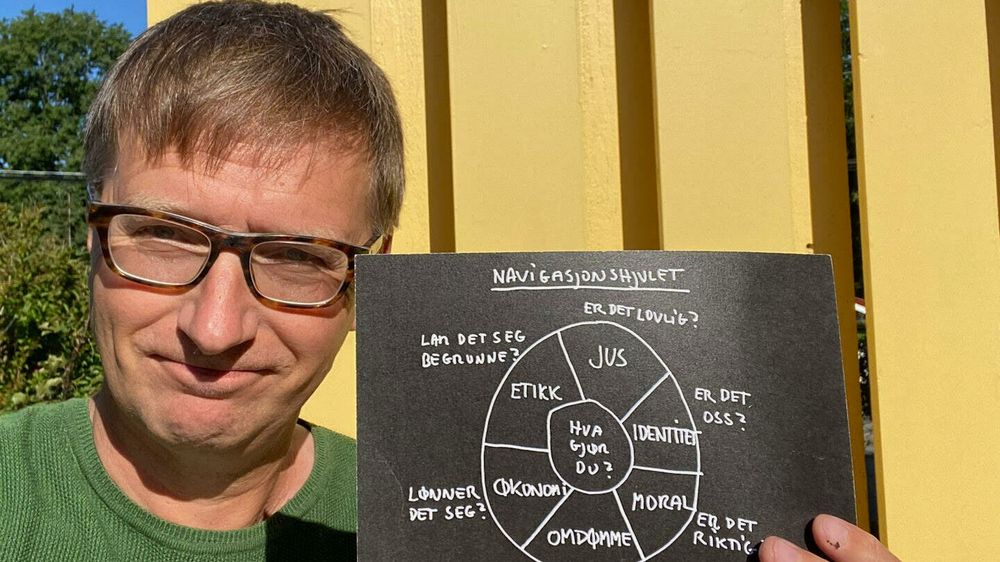 NAVIGASJONSHJULET
ER DET LOVLIG?
LAR DET SEG
BEGRUNNE?
JUS
ETIKK
ER DET
OSS?
IDENTITET
HVA
GJØR
DU?
ØKONOMI
MORAL
LØNNER
DET SEG?
ER DET
RIKTIG
OMDØMME